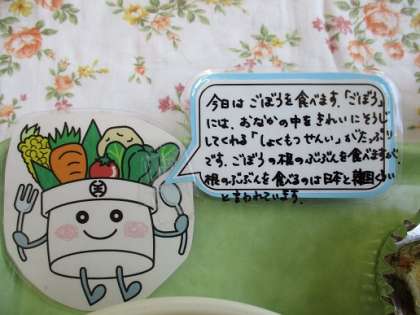 今日は ごぼうを食べます。「ごぼう」
には、おなかの中をきれいにそうじ
してくれる「しょくもつせんい」がたっぷり
です。ごぼうの根のぶぶんを食べますが、
根のぶぶんを食べるのは日本と韓国くらい
といわれています。